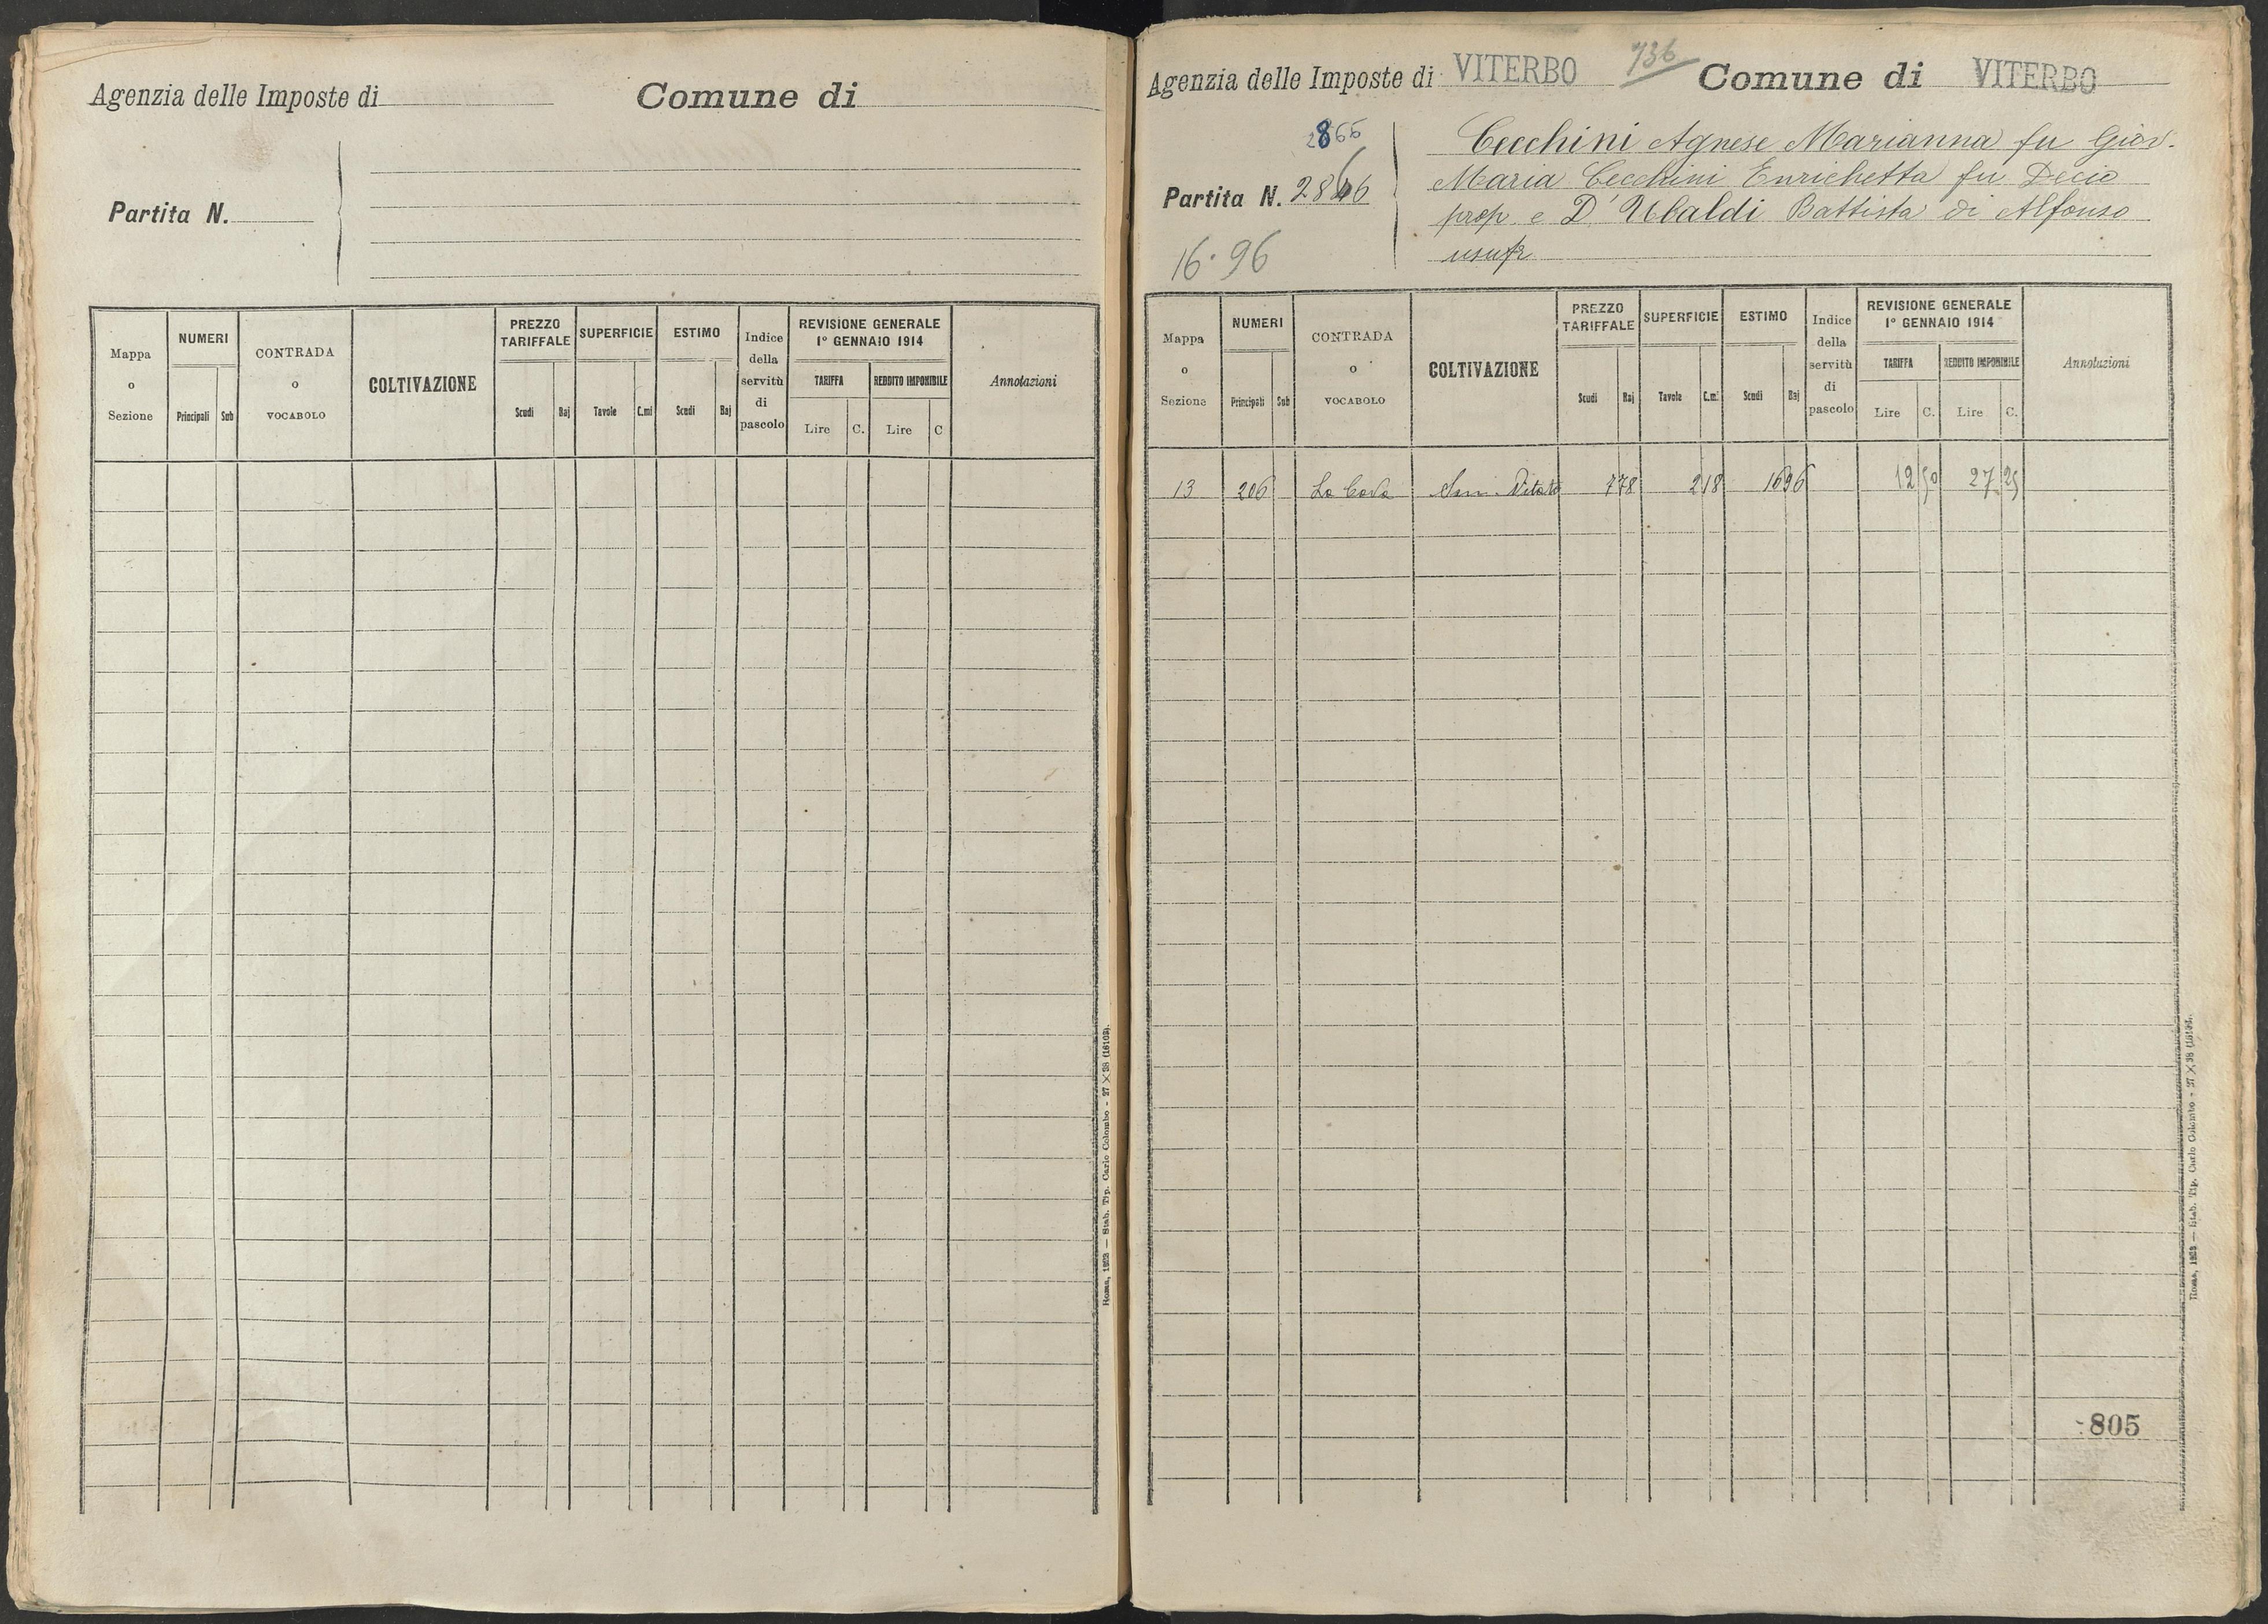 Agenzia delle Imposte di
Comune di
Partita N.
Mappa o Sezione
NUMERI
Principali Sub
CONTRADA o VOCABOLO
COLTIVAZIONE
PREZZO TARIFFALE
Scudi Baj
SUPERFICIE
Tavole C.mi
ESTIMO
Scudi Baj
Indice della servitù di pascolo
REVISIONE GENERALE
1° GENNAIO 1914
TARIFFA
Lire C.
REDDITO IMPONIBILE
Lire C
Annotazioni
Roma, 1923 — Stab. Tip. Carlo Colombo - 27 × 38 (16102).
Agenzia delle Imposte di VITERBO
736
Comune di VITERBO
2866
Partita N. 2846
16.96
Cecchini Agnese Marianna fu Giov.
Maria Cecchini Enrichetta fu Decio
prop. e D'Ubaldi Battista di Alfonso
usufr.
Mappa o Sezione
NUMERI
Principali Sub
CONTRADA o VOCABOLO
COLTIVAZIONE
PREZZO TARIFFALE
Scudi Baj
SUPERFICIE
Tavole C.mi
ESTIMO
Scudi Baj
Indice della servitù di pascolo
REVISIONE GENERALE
1° GENNAIO 1914
TARIFFA
Lire C.
REDDITO IMPONIBILE
Lire C.
Annotazioni
13 206 La Cava Sem. Vitato 7 78 2 18 16 96 12 50 27 25
805
Roma, 1923 — Stab. Tip. Carlo Colombo - 27 × 38 (16102).